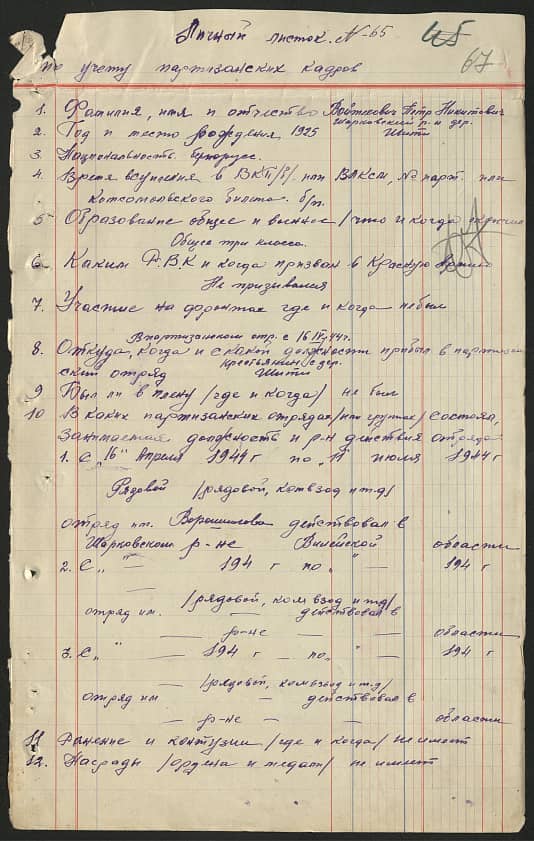 Личный листок. N-65
45
67
по учету партизанских кадров
1. Фамилия, имя и отчество Войткович Петр Никитович
Шарковский р-н дер.
2. Год и место рождения 1925 Шити
3. Национальность белорусс.
4. Время вступления в ВКП/б/ или ВЛКСМ, № парт. или
комсомольского билета. б/п.
5 Образование общее и военное /что и когда окончил
Общее три класса.
6. Каким Р.В.К и когда призван в Красную Армию
Не призывался
7. Участие на фронтах где и когда не был
В партизанском отр. с 16 IV-44 г.
8. Откуда, когда и с какой должности прибыл в партизан
крестьянин с дер.
ский отряд Шити
9 Был ли в плену /где и когда/ не был
10 В каких партизанских отрядах /или группах/ состоял,
занимаемая должность и р-н действия отряда
1. С "16" Апреля 1944 г по "11" июля 1944 г
Рядовой /рядовой, комвзод и т.д/
отряд им. Ворошилова действовал в
Шарковском р-не Вилейской области
2. С " — 194 г по " — 194 г
/рядовой, ком взод и т.д/
отряд им. — действовал в
— р-не — области
3. С " — 194 г по " — 194 г
/рядовой, комвзод и т.д/
отряд им — действовал в
— р-не — области
11 Ранение и контузии /где и когда/ не имеет
12. Награды /ордена и медали/ не имеет